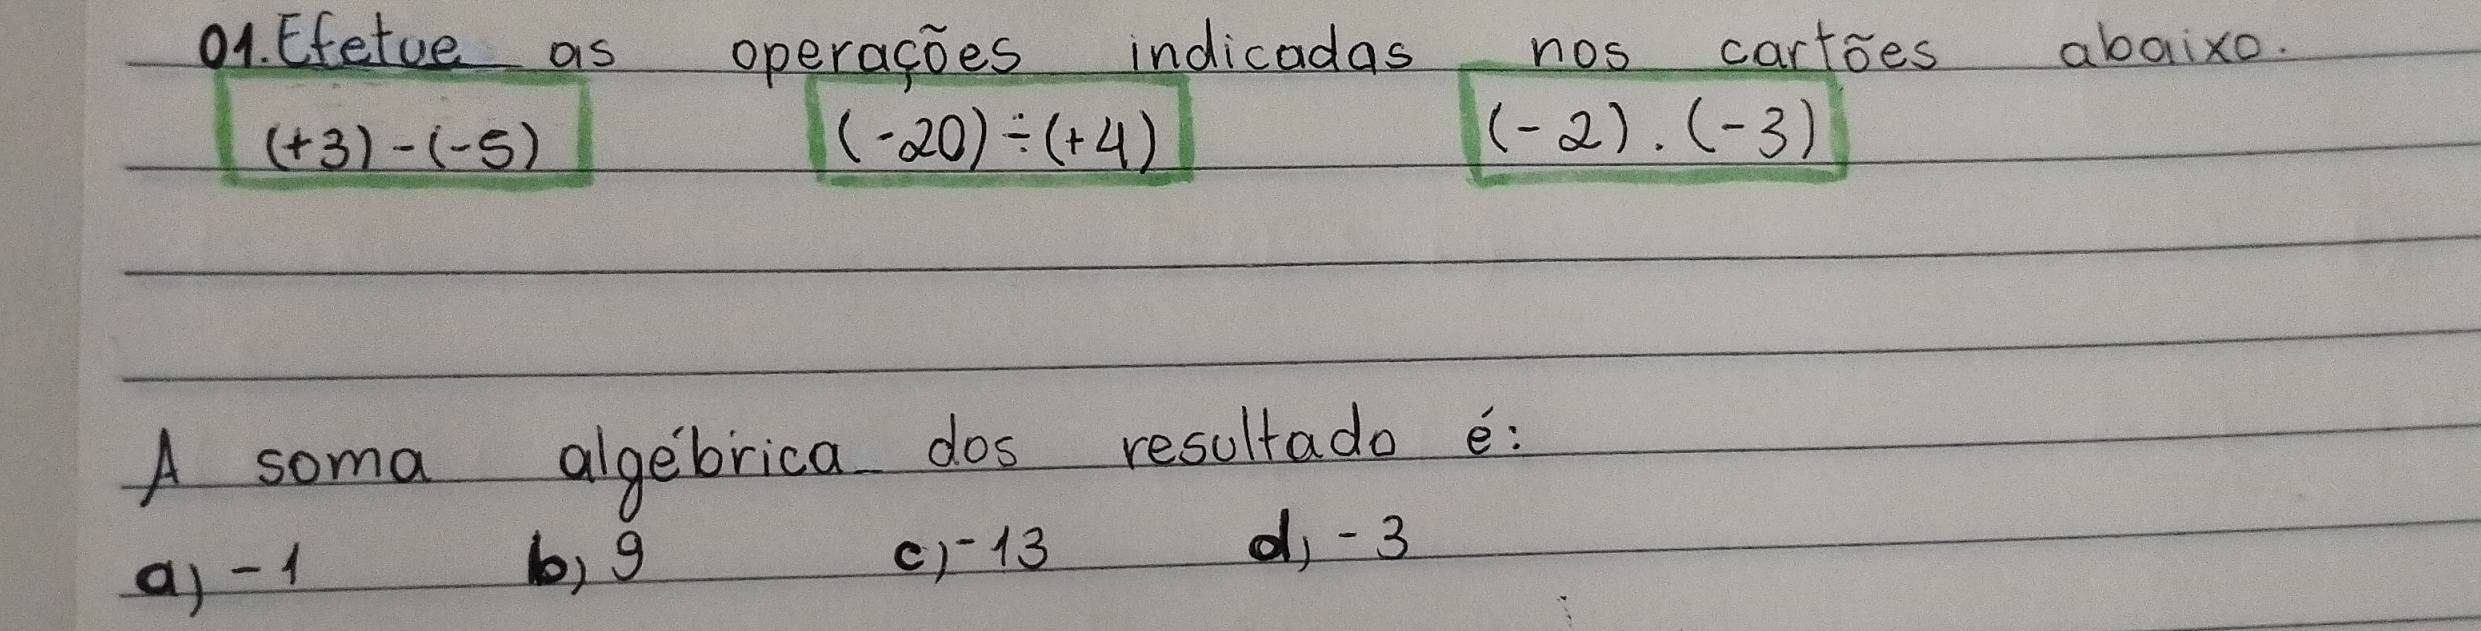 01. Efetue as operações indicadas nos cartões abaixo.
(+3)-(-5) (-20)÷(+4) (-2).(-3)
A soma algébrica dos resultado é:
a) -1 b) 9 c) -13 d) -3